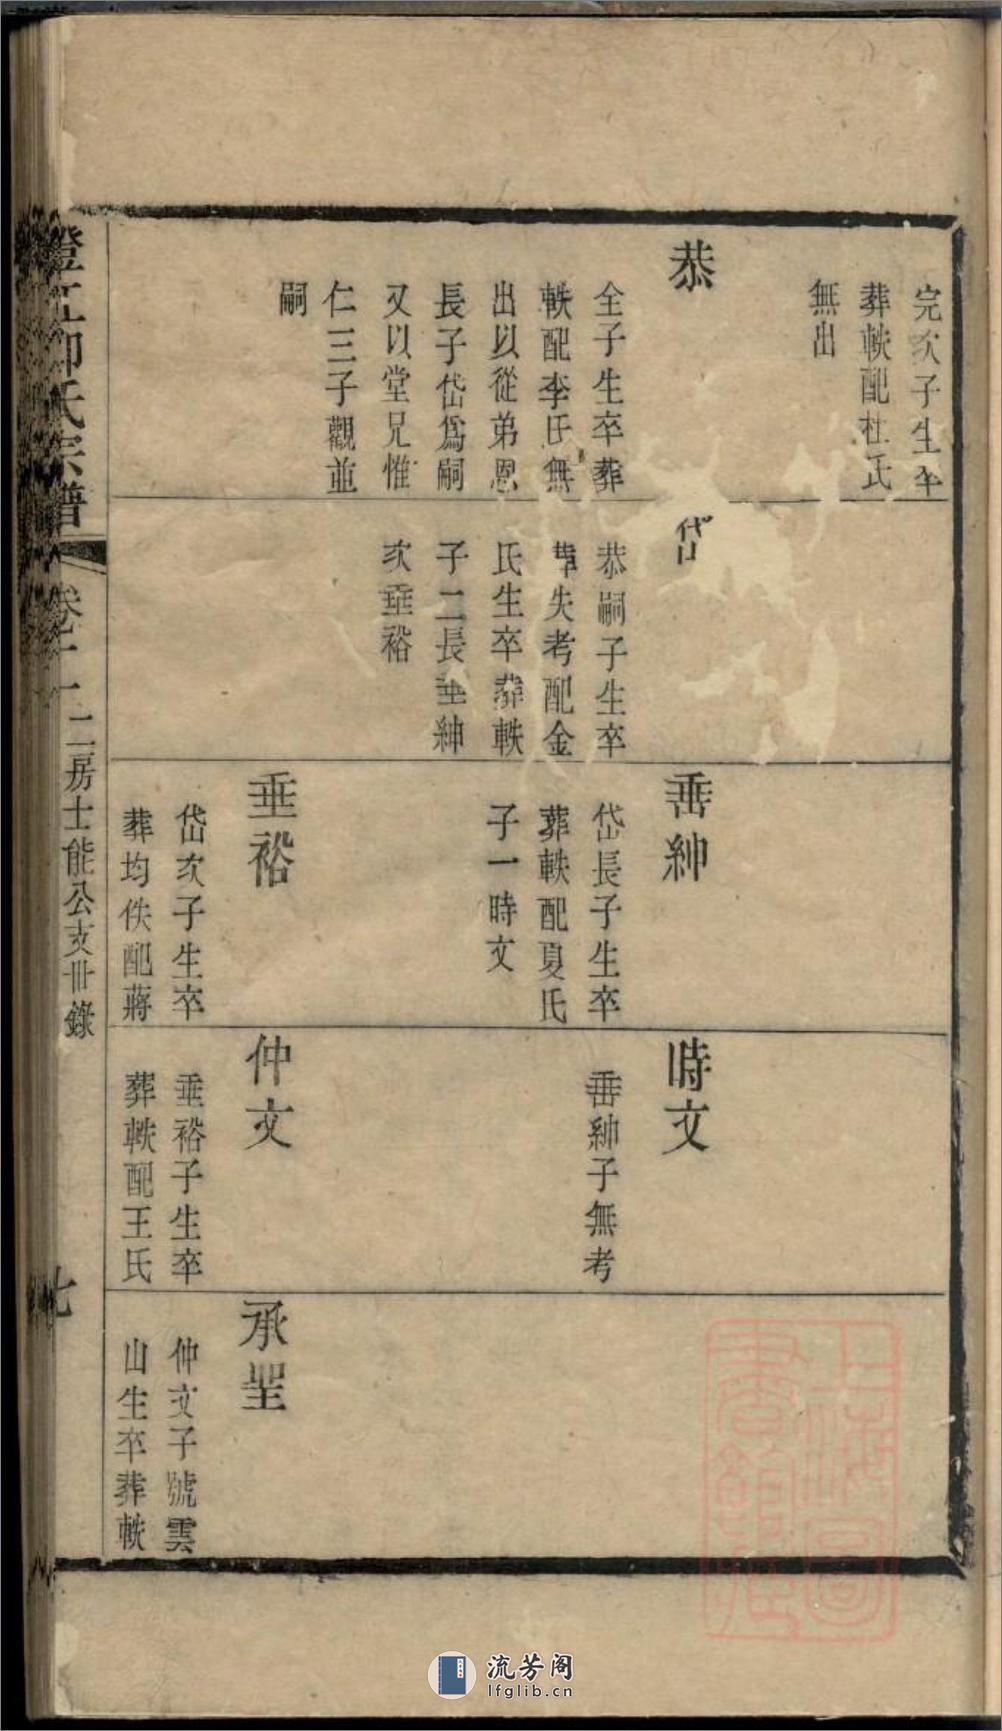 完次子生卒
葬軼配杜氏
無出
恭
全子生卒葬
軼配李氏無
出以從弟恩
長子岱爲嗣
又以堂兄惟
仁三子觀並
嗣
岱
恭嗣子生卒
葬失考配金
氏生卒葬軼
子二長垂紳
次垂裕
垂紳
岱長子生卒
葬軼配夏氏
子一時文
垂裕
岱次子生卒
葬均佚配蔣
時文
垂紳子無考
仲文
垂裕子生卒
葬軼配王氏
承堊
仲文子號雲
山生卒葬軼
澄江 氏宗譜
卷十二 二房士能公支世錄
七
上海圖書館藏
流芳阁
lfglib.cn